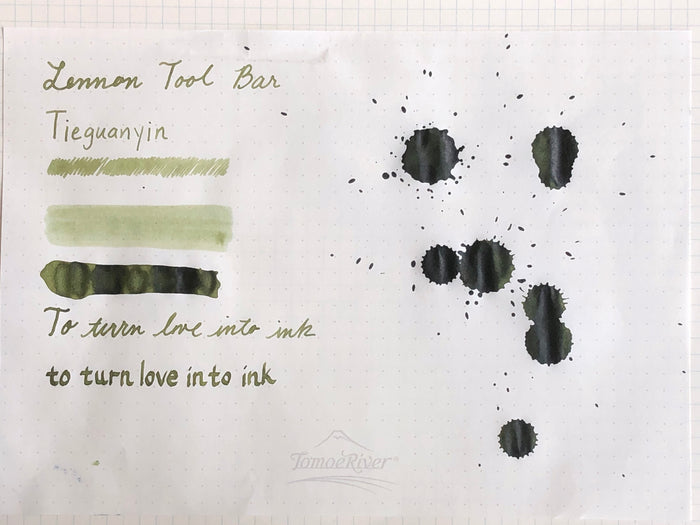 Lennon Tool Bar
Tieguanyin
To turn love into ink
to turn love into ink
TomoeRiver